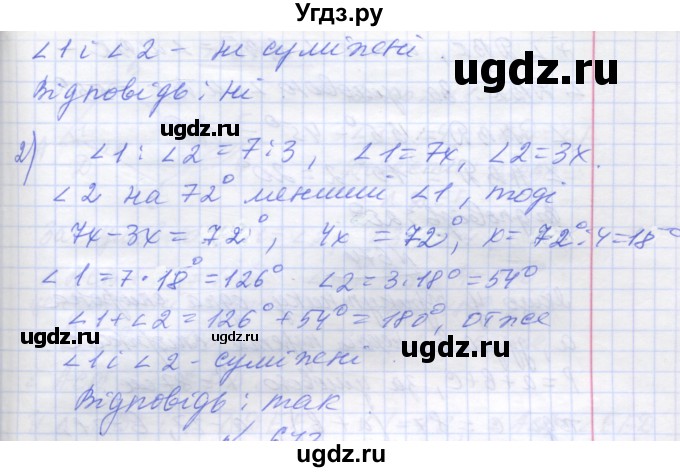 Угдз.ру
∠1 і ∠2 - не суміжні.
ugdz.ru
Відповідь: ні
ugdz.ru
2) ∠1 : ∠2 = 7:3, ∠1=7x, ∠2=3x.
∠2 на 72° менший ∠1, тоді
7x-3x = 72°, 4x = 72°, x = 72°:4=18°
∠1=7·18°=126° ∠2=3·18°=54°
∠1+∠2=126°+54°=180°, отже
ugdz.ru ugdz.ru ugdz.ru
∠1 і ∠2 - суміжні.
Відповідь: так.
ugdz.ru